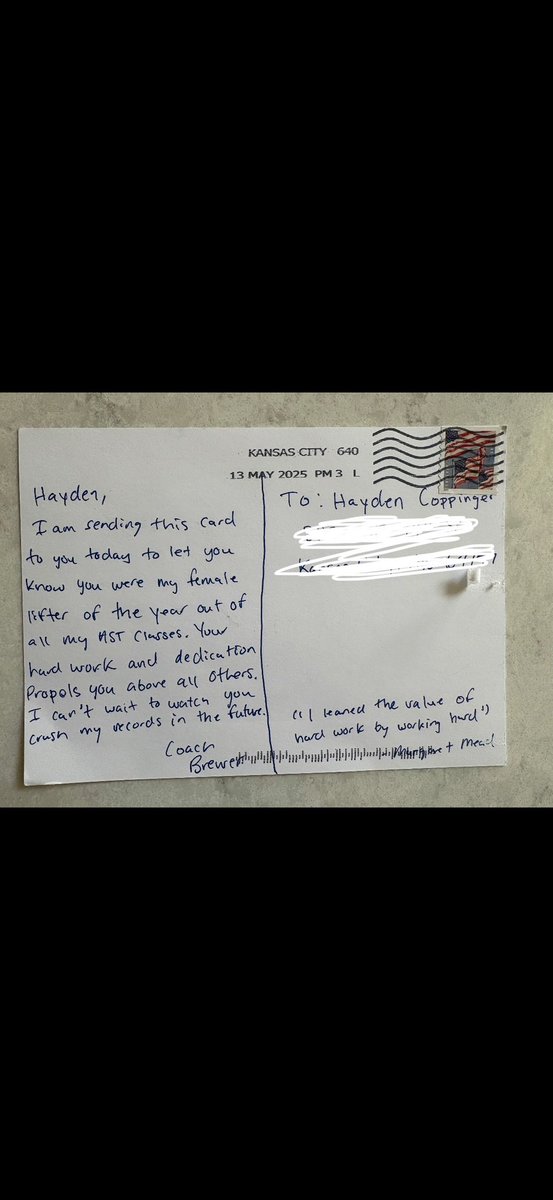 KANSAS CITY 640
13 MAY 2025 PM 3 L
Hayden,
I am sending this card
to you today to let you
know you were my female
lifter of the year out of
all my AST Classes. Your
hard work and dedication
Propels you above all others.
I can't wait to watch you
crush my records in the future.
Coach
Brewer
To: Hayden Coppinger
"I leaned the value of
hard work by working hard"
- Margaret Mead